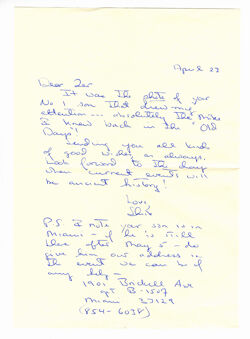 April 23
Dear Zer
It was the photo of your
No 1 son that drew my
attention... absolutely the Mike
I knew back in the "Old
Days"!
Sending you all kinds
of good wishes as always.
Look forward to the day
when current events will
be ancient history!
Love
P.S I note your son is in
Miami - if he is still
there after May 5 - do
give him our address in
the event we can be of
any help -
1901 Brickell Ave
apt B-1507
Miami 33129
(854-6038)